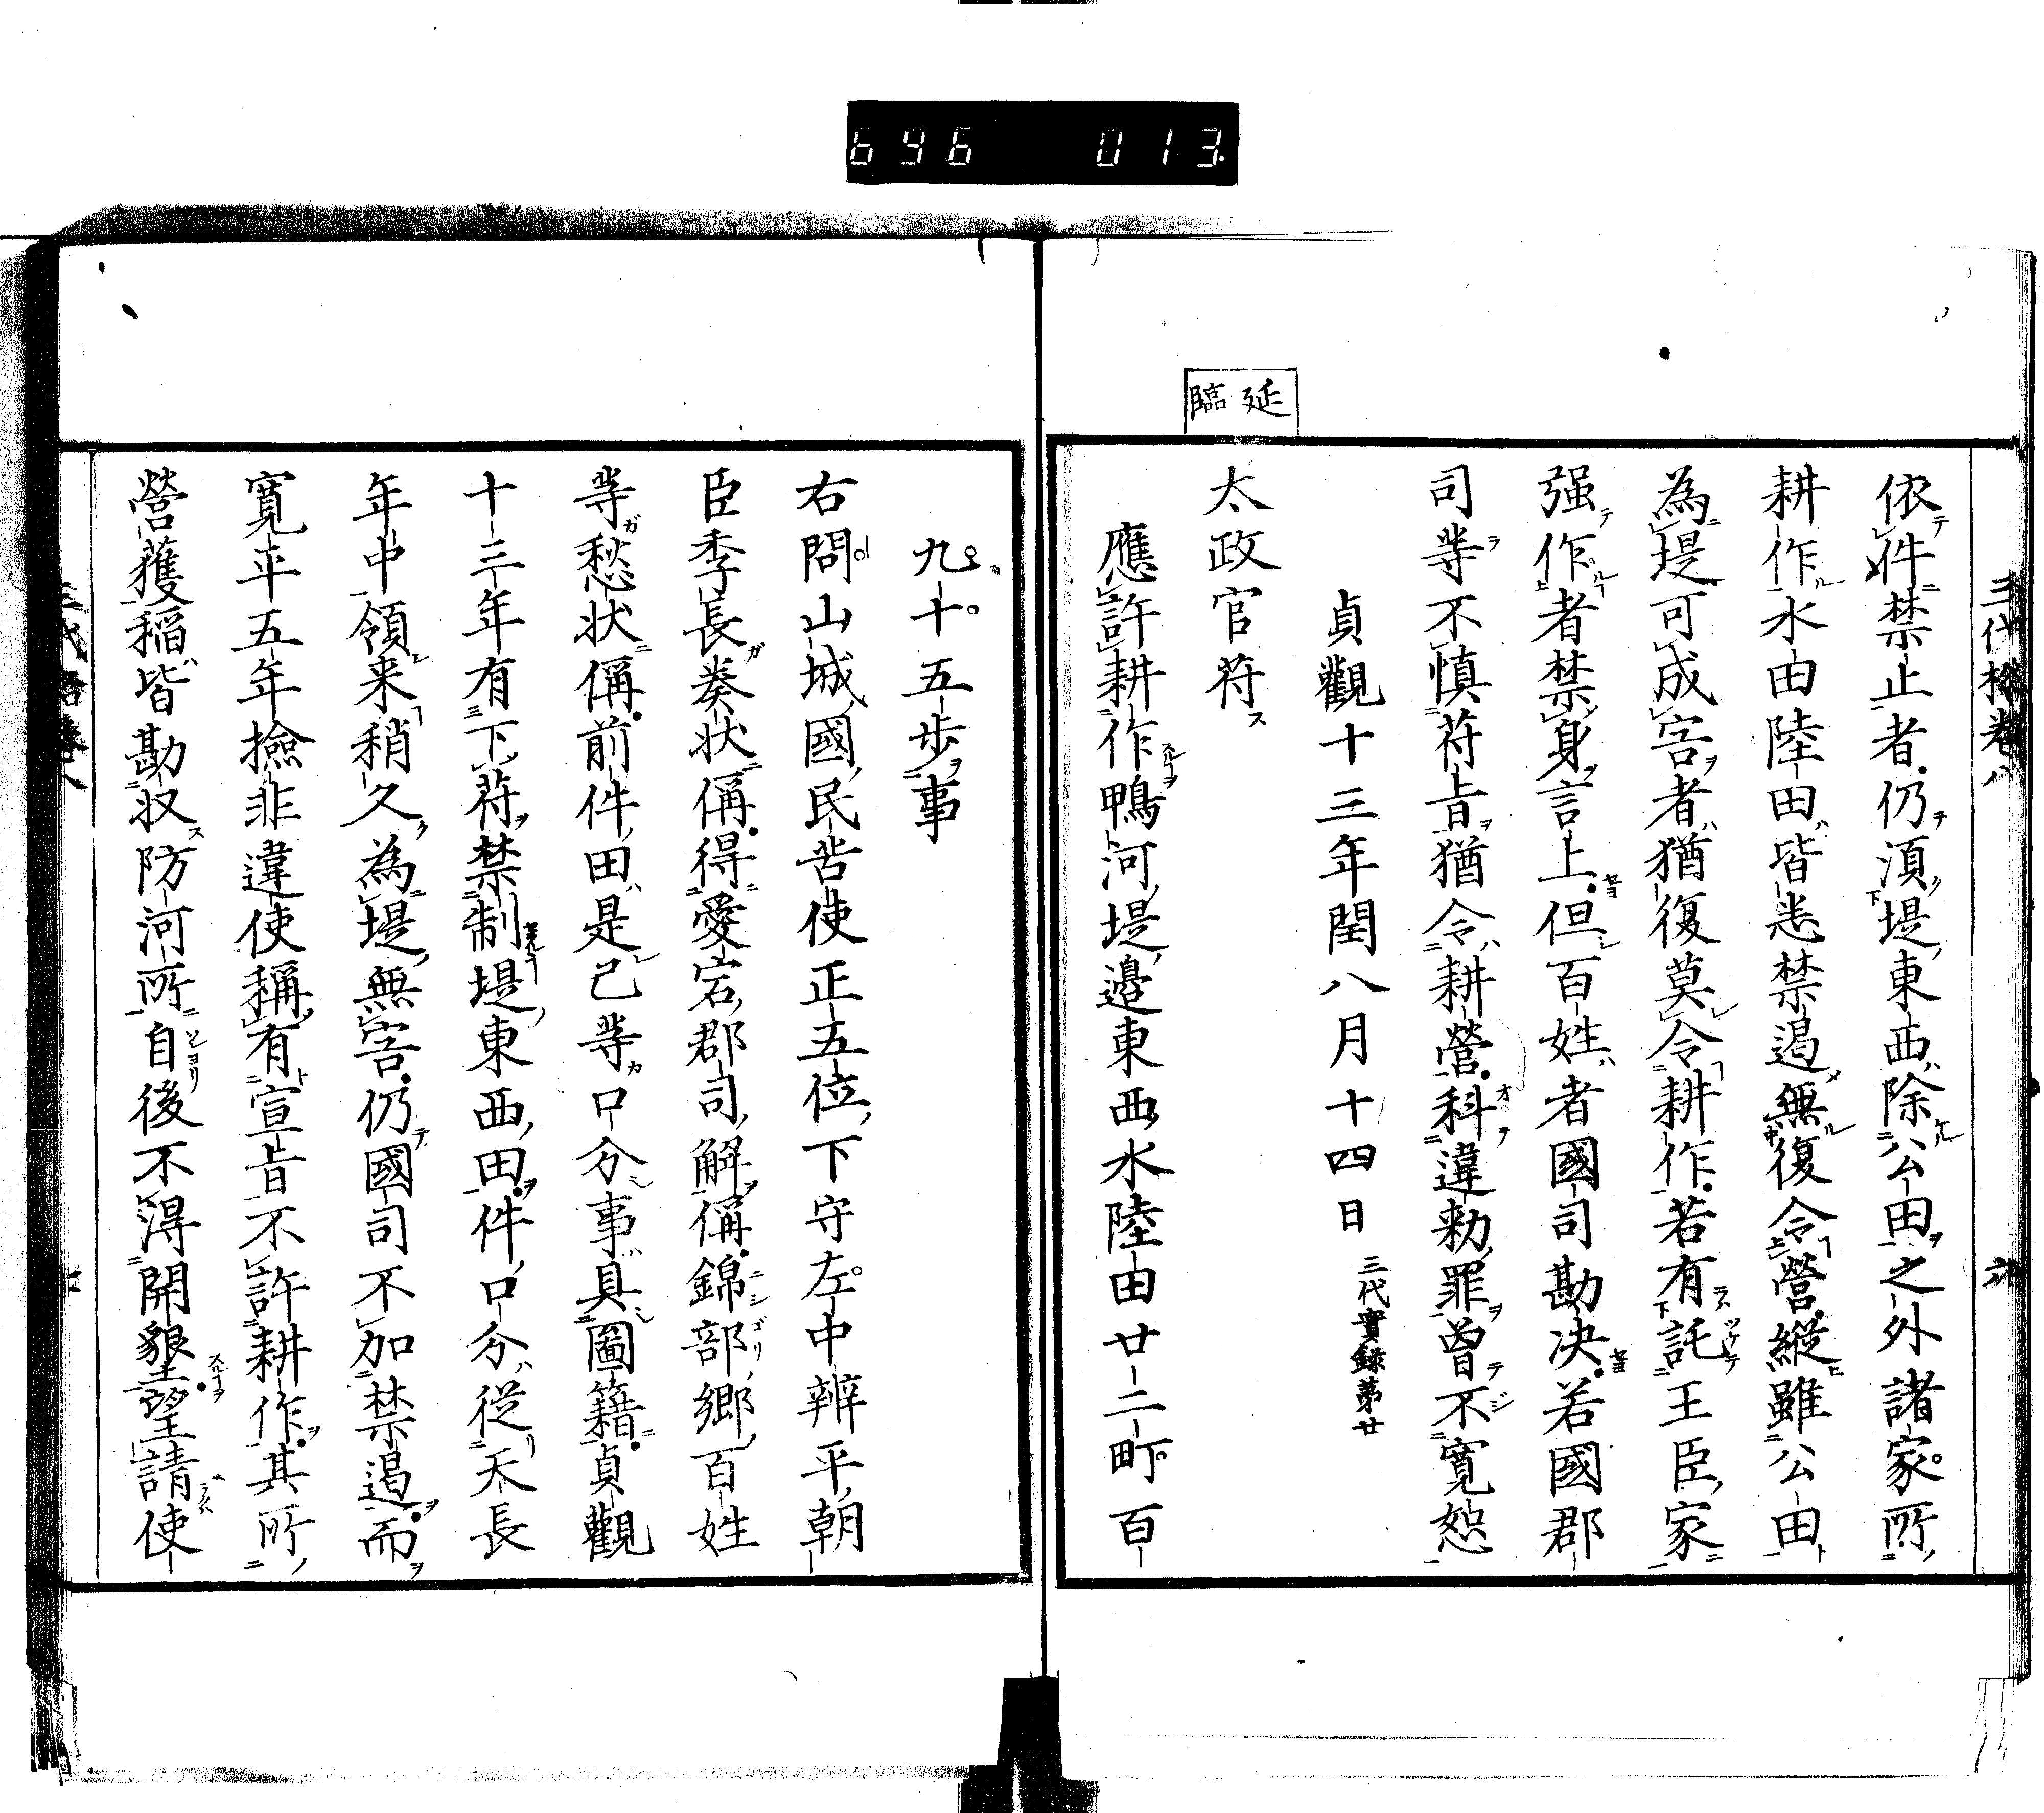 696 013
三代格卷八
依件禁止者仍須堤東西除公田之外諸家所
耕作水田陸田皆悉禁遏無復令營縱雖公田
為堤可成害者猶復莫令耕作若有託王臣家
强作者禁身言上但百姓者國司勘決若國郡
司等不慎符旨猶令耕營科違勅罪曾不寬恕
貞觀十三年閏八月十四日 三代實錄第廿
延臨
太政官符
應許耕作鴨河堤邊東西水陸田廿二町百
九十五步事
右問山城國民苦使正五位下守左中辨平朝
臣季長奏狀偁得愛宕郡司解偁錦部鄉百姓
等愁狀偁前件田是己等口分事具圖籍貞觀
十三年有下符禁制堤東西田件口分從天長
年中領来稍久為堤無害仍國司不加禁遏而
寬平五年撿非違使稱有宣旨不許耕作其所
營獲稲皆勘收防河所自後不得開墾望請使